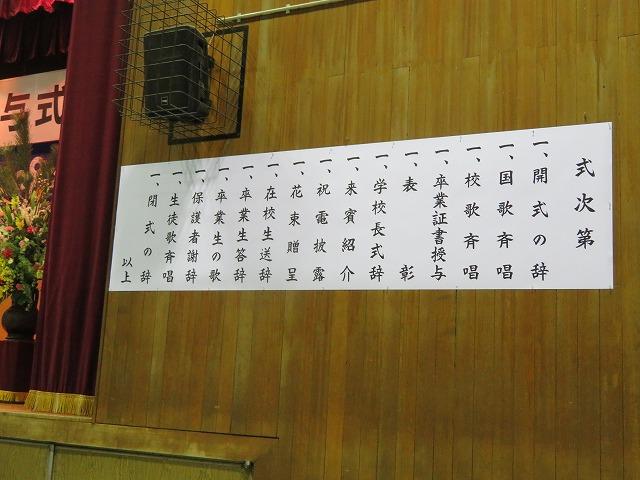 式次第
一、開式の辞
一、国歌斉唱
一、校歌斉唱
一、卒業証書授与
一、表彰
一、学校長式辞
一、来賓紹介
一、祝電披露
一、花束贈呈
一、在校生送辞
一、卒業生答辞
一、卒業生の歌
一、保護者謝辞
一、生徒歌斉唱
一、閉式の辞
以上
与式